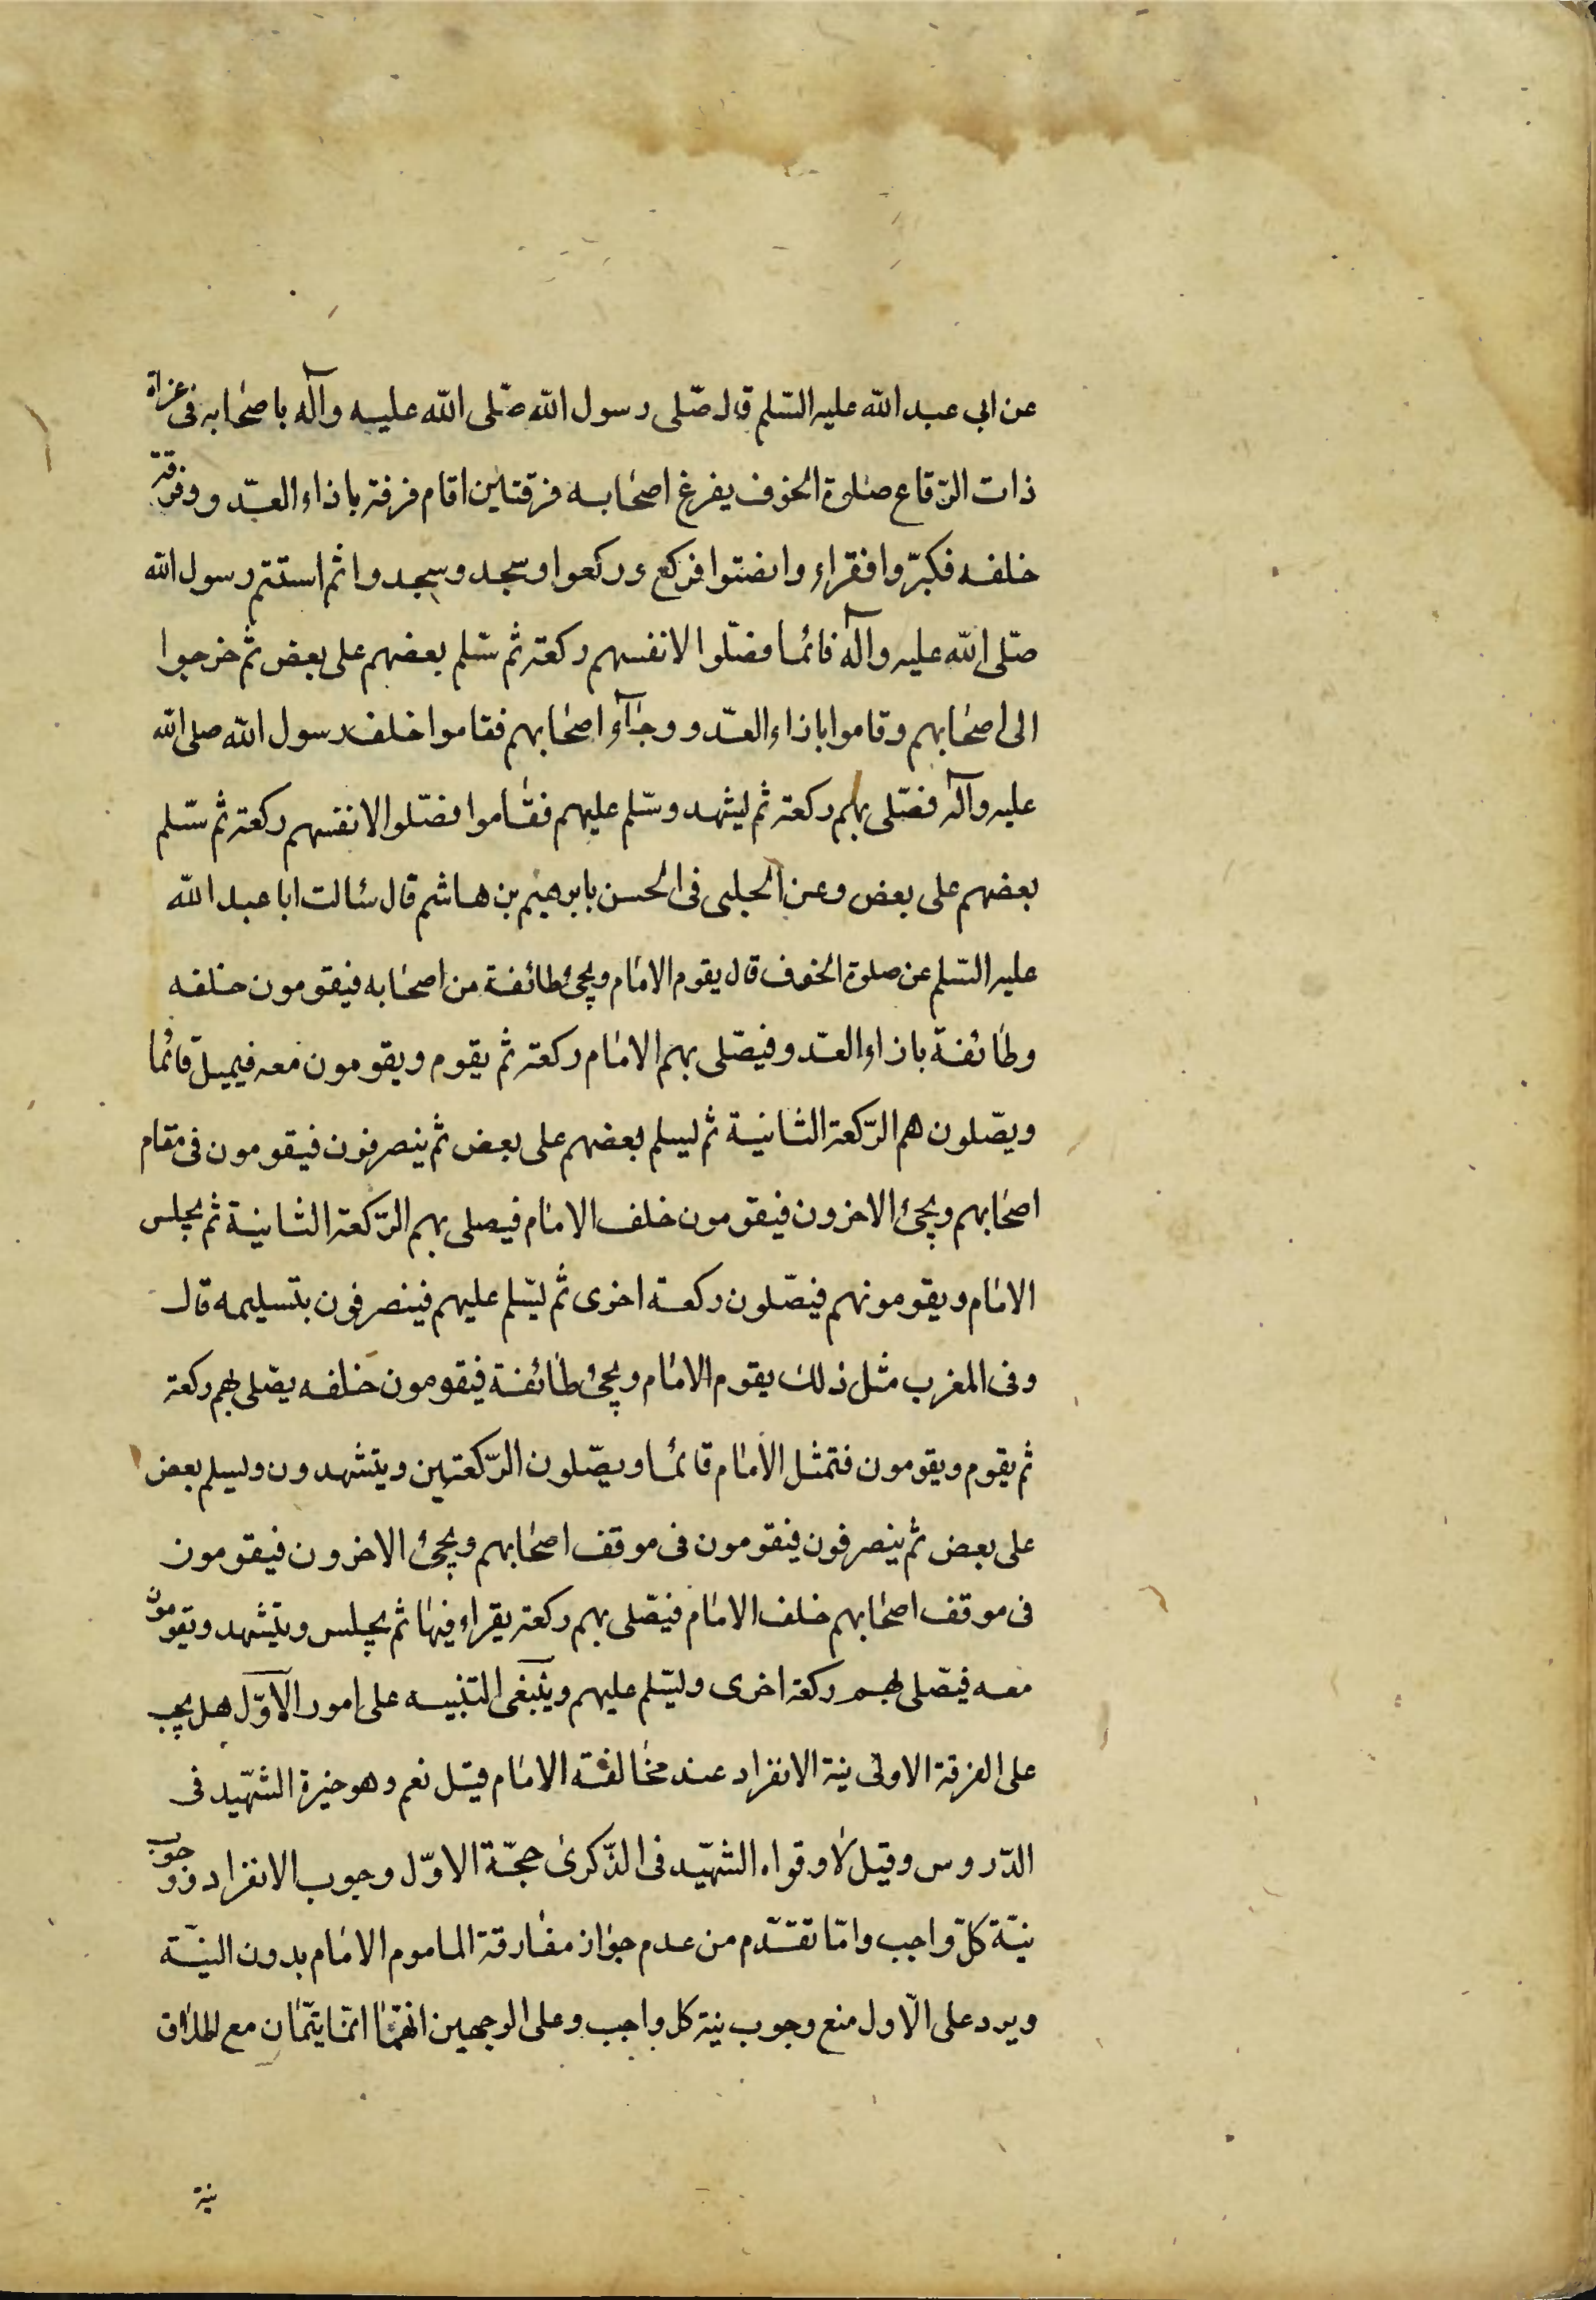 عن ابى عبد الله عليه السّلم قال صّلى رسول الله صّلى الله عليه وآله باصحابه فى غزاة
ذات الرّقاع صلوة الخوف يفرغ اصحابه فرقتاين اقام فرقة باذاء العدّو وفرقة
خلفه فكبّر وا فقراء وانصتوا فركع وركعوا وسجد وسجدوا ثم استتم رسول الله
صّلى الله عليه وآله قائما فصّلوا لانفسهم ركعة ثم سّلم بعضهم على بعض ثم خرجوا
الى اصحابهم وقاموا باذاء العدّو وجاؤ اصحابهم فقاموا خلف رسول الله صلى الله
عليه وآله فصّلى بهم ركعة ثم ليشهد وسّلم عليهم فقاموا فصّلوا لانفسهم ركعة ثم سّلم
بعضهم على بعض وعن الحلبى فى الحسن بابرهيم بن هاشم قال سئالت ابا عبد الله
عليه السّلم عن صلوة الخوف قال يقوم الامام ويجئ طائفة من اصحابه فيقومون خلفه
وطائفة باذاء العدّو فيصّلى بهم الامام ركعة ثم يقوم ويقومون معه فيميل قائما
ويصّلون هم الرّكعة الثانية ثم ليسلم بعضهم على بعض ثم ينصرفون فيقومون فى مقام
اصحابهم ويجئ الاخرون فيقومون خلف الامام فيصلى بهم الرّكعة الثانية ثم يجلس
الامام ويقومونهم فيصّلون ركعة اخرى ثم ليسّلم عليهم فينصرفون بتسليمه قال
وفى المغرب مثل ذلك يقوم الامام ويجئ طائفة فيقومون خلفه يصّلى بهم ركعة
ثم يقوم ويقومون فتمثل الامام قائما ويصّلون الرّكعتين ويتشهدون وليسلم بعض
على بعض ثم ينصرفون فيقومون فى موقف اصحابهم ويجئ الاخرون فيقومون
فى موقف اصحابهم خلف الامام فيصّلى بهم ركعة يقراء فيها ثم يجلس ويتشهد ويقومون
معه فيصّلى بهم ركعة اخرى وليسّلم عليهم وينبغى التنبيه على امور الاوّل هل يجب
على الفرقة الاولى نية الانفراد عند مخالفته الامام قيل نعم وهو خيرة الشهّيد فى
الدّروس وقيل لا وقواه الشهّيد فى الذّكرى حجّة الاوّل وجوب الانفراد ووجوب
نيّة كلّ واجب وامّا تقدّم من عدم جواز مفارقة الماموم الامام بدون النيّة
ويرد على الاول منع وجوب نية كل واجب وعلى الوجهين انهّما انمّا يتمّان مع
نية